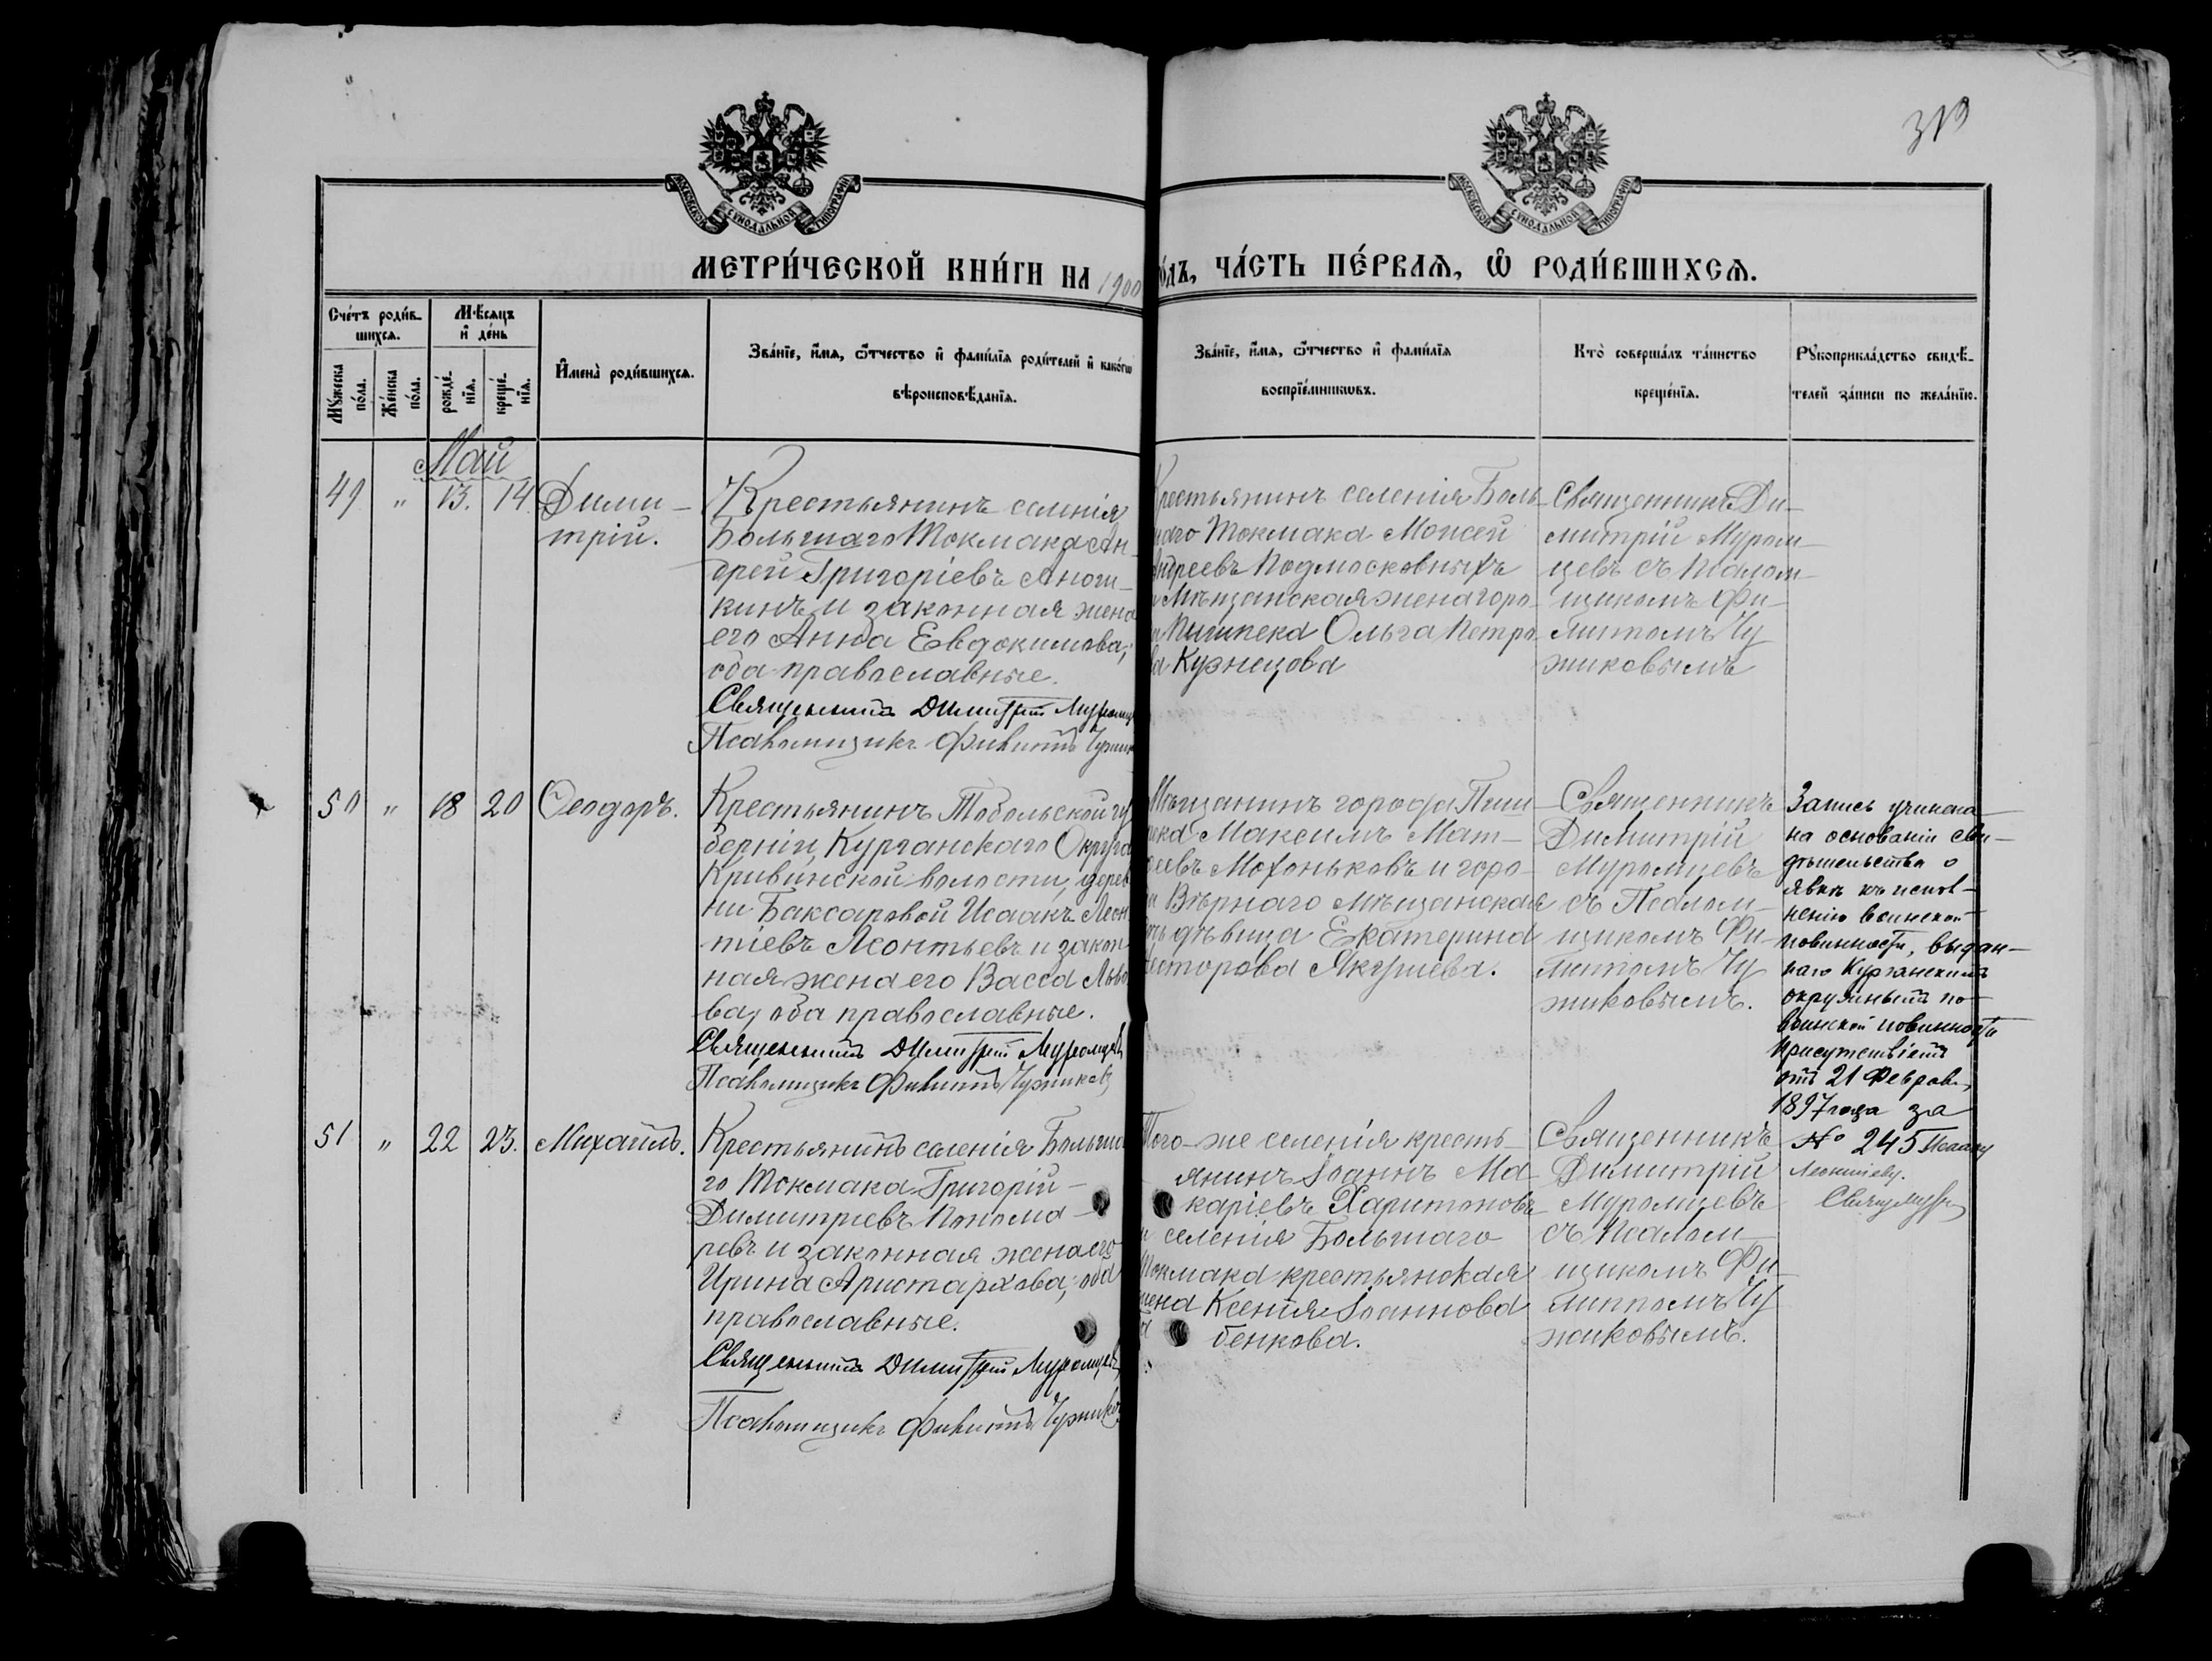 319
МОСКОВСКОЙ СѴНОДАЛЬНОЙ ТИПОГРАФІИ
МОСКОВСКОЙ СѴНОДАЛЬНОЙ ТИПОГРАФІИ
МЕТРИ́ЧЕСКОЙ КНИ́ГИ НА 1900
О́ДЪ, ЧА́СТЬ ПЕ́РВАѦ, Ѽ РОДИ́ВШИХСѦ.
Сче́тъ роди́в-
шихсѧ.
Мꙋжеска
по́ла.
Же́нска
по́ла.
Мѣ́сяцъ
и҆ де́нь
рожде́-
нїѧ.
креще́-
нїѧ.
И҆мена̀ роди́вшихсѧ.
Зва́нїе, и҆́мѧ, ѻ҆́тчество и҆ фами́лїѧ роди́телей и҆ како́гѡ
вѣроисповѣ́данїѧ.
Зва́нїе, и҆́мѧ, ѻ҆́тчество и҆ фами́лїѧ
воспрїе́мникѡвъ.
Кто̀ соверша́лъ та́инство
креще́нїѧ.
Рꙋкоприкла́дство свидѣ́-
телей за́писи по жела́нїю.
Май
49 " 13. 14 Дими-
трій.
Крестьянинъ селенія
Большаго Токмака Ан-
дрей Григоріевъ
и законная жена
его Анна Евдокимова,
оба православные.
Священникъ Димитрій Муромц
Псаломщикъ Филиппъ Чужик
Крестьянинъ селенія Боль-
наго Токмака Моисей
Андреевъ Подмосковныхъ
и Мѣщанская жена горо-
Пишпека Ольга Петро
ва Кузнецова
Священникъ Ди-
митрій Муром-
цевъ съ Псалом-
щикомъ Фи-
липпомъ Чу
жиковымъ
50 " 18 20 Ѳеодоръ.
Крестьянинъ Тобольской гу
берніи, Курганскаго Округа
Кривинской волости, дерев
ни Баксаровой Исаакъ Леон
тіевъ Леонтьевъ и закон
ная жена его Васса Льво
ва, оба православные.
Священникъ Димитрій Муромцевъ
Псаломщикъ Филиппъ Чужиковъ
Мѣщанинъ города Пиш-
пека Максимъ Мат-
ѳеевъ Мохоньковъ и горо-
Вѣрнаго Мѣщанская
дѣвица Екатерина
Несторова Якушева.
Священникъ
Димитрій
Муромцевъ
съ Псалом-
щикомъ Фи-
липпомъ Чу
жиковымъ.
Запись учинена
на основаніи сви-
дѣтельства о
явкѣ къ испол-
ненію воинской
повинности, выдан-
наго Курганскимъ
окружнымъ по
воинской повинности
присутствіемъ
отъ 21 Феврал.
1897 года за
№ 245 Исааку
Леонтіеву.
51 " 22 23. Михаилъ.
Крестьянинъ селенія Больша
го Токмака Григорій
Димитріевъ Понома-
ревъ и законная жена его
Ирина Аристархова, оба
православные.
Священникъ Димитрій Муромцевъ
Псаломщикъ Филиппъ Чужиковъ
Того-же селенія кресть-
янинъ Іоаннъ Ма-
каріевъ Харитоновъ
и селенія Большаго
Токмака крестьянская
жена Ксенія Іоаннова
бенкова.
Священникъ
Димитрій
Муромцевъ
съ Псалом-
щикомъ Фи-
липпомъ Чу
жиковымъ.